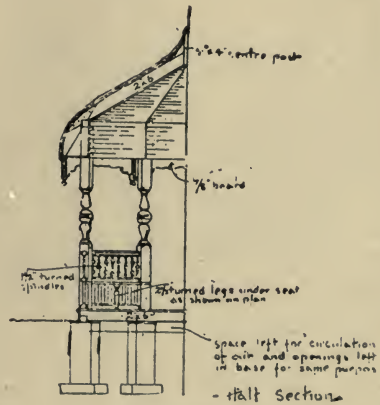 centre post
2x6
7/8" board
1½" turned
spindles
turned legs under seat
as shown on plan
2x6
space left for circulation
of air and openings left
in base for same purpos
- Half Section